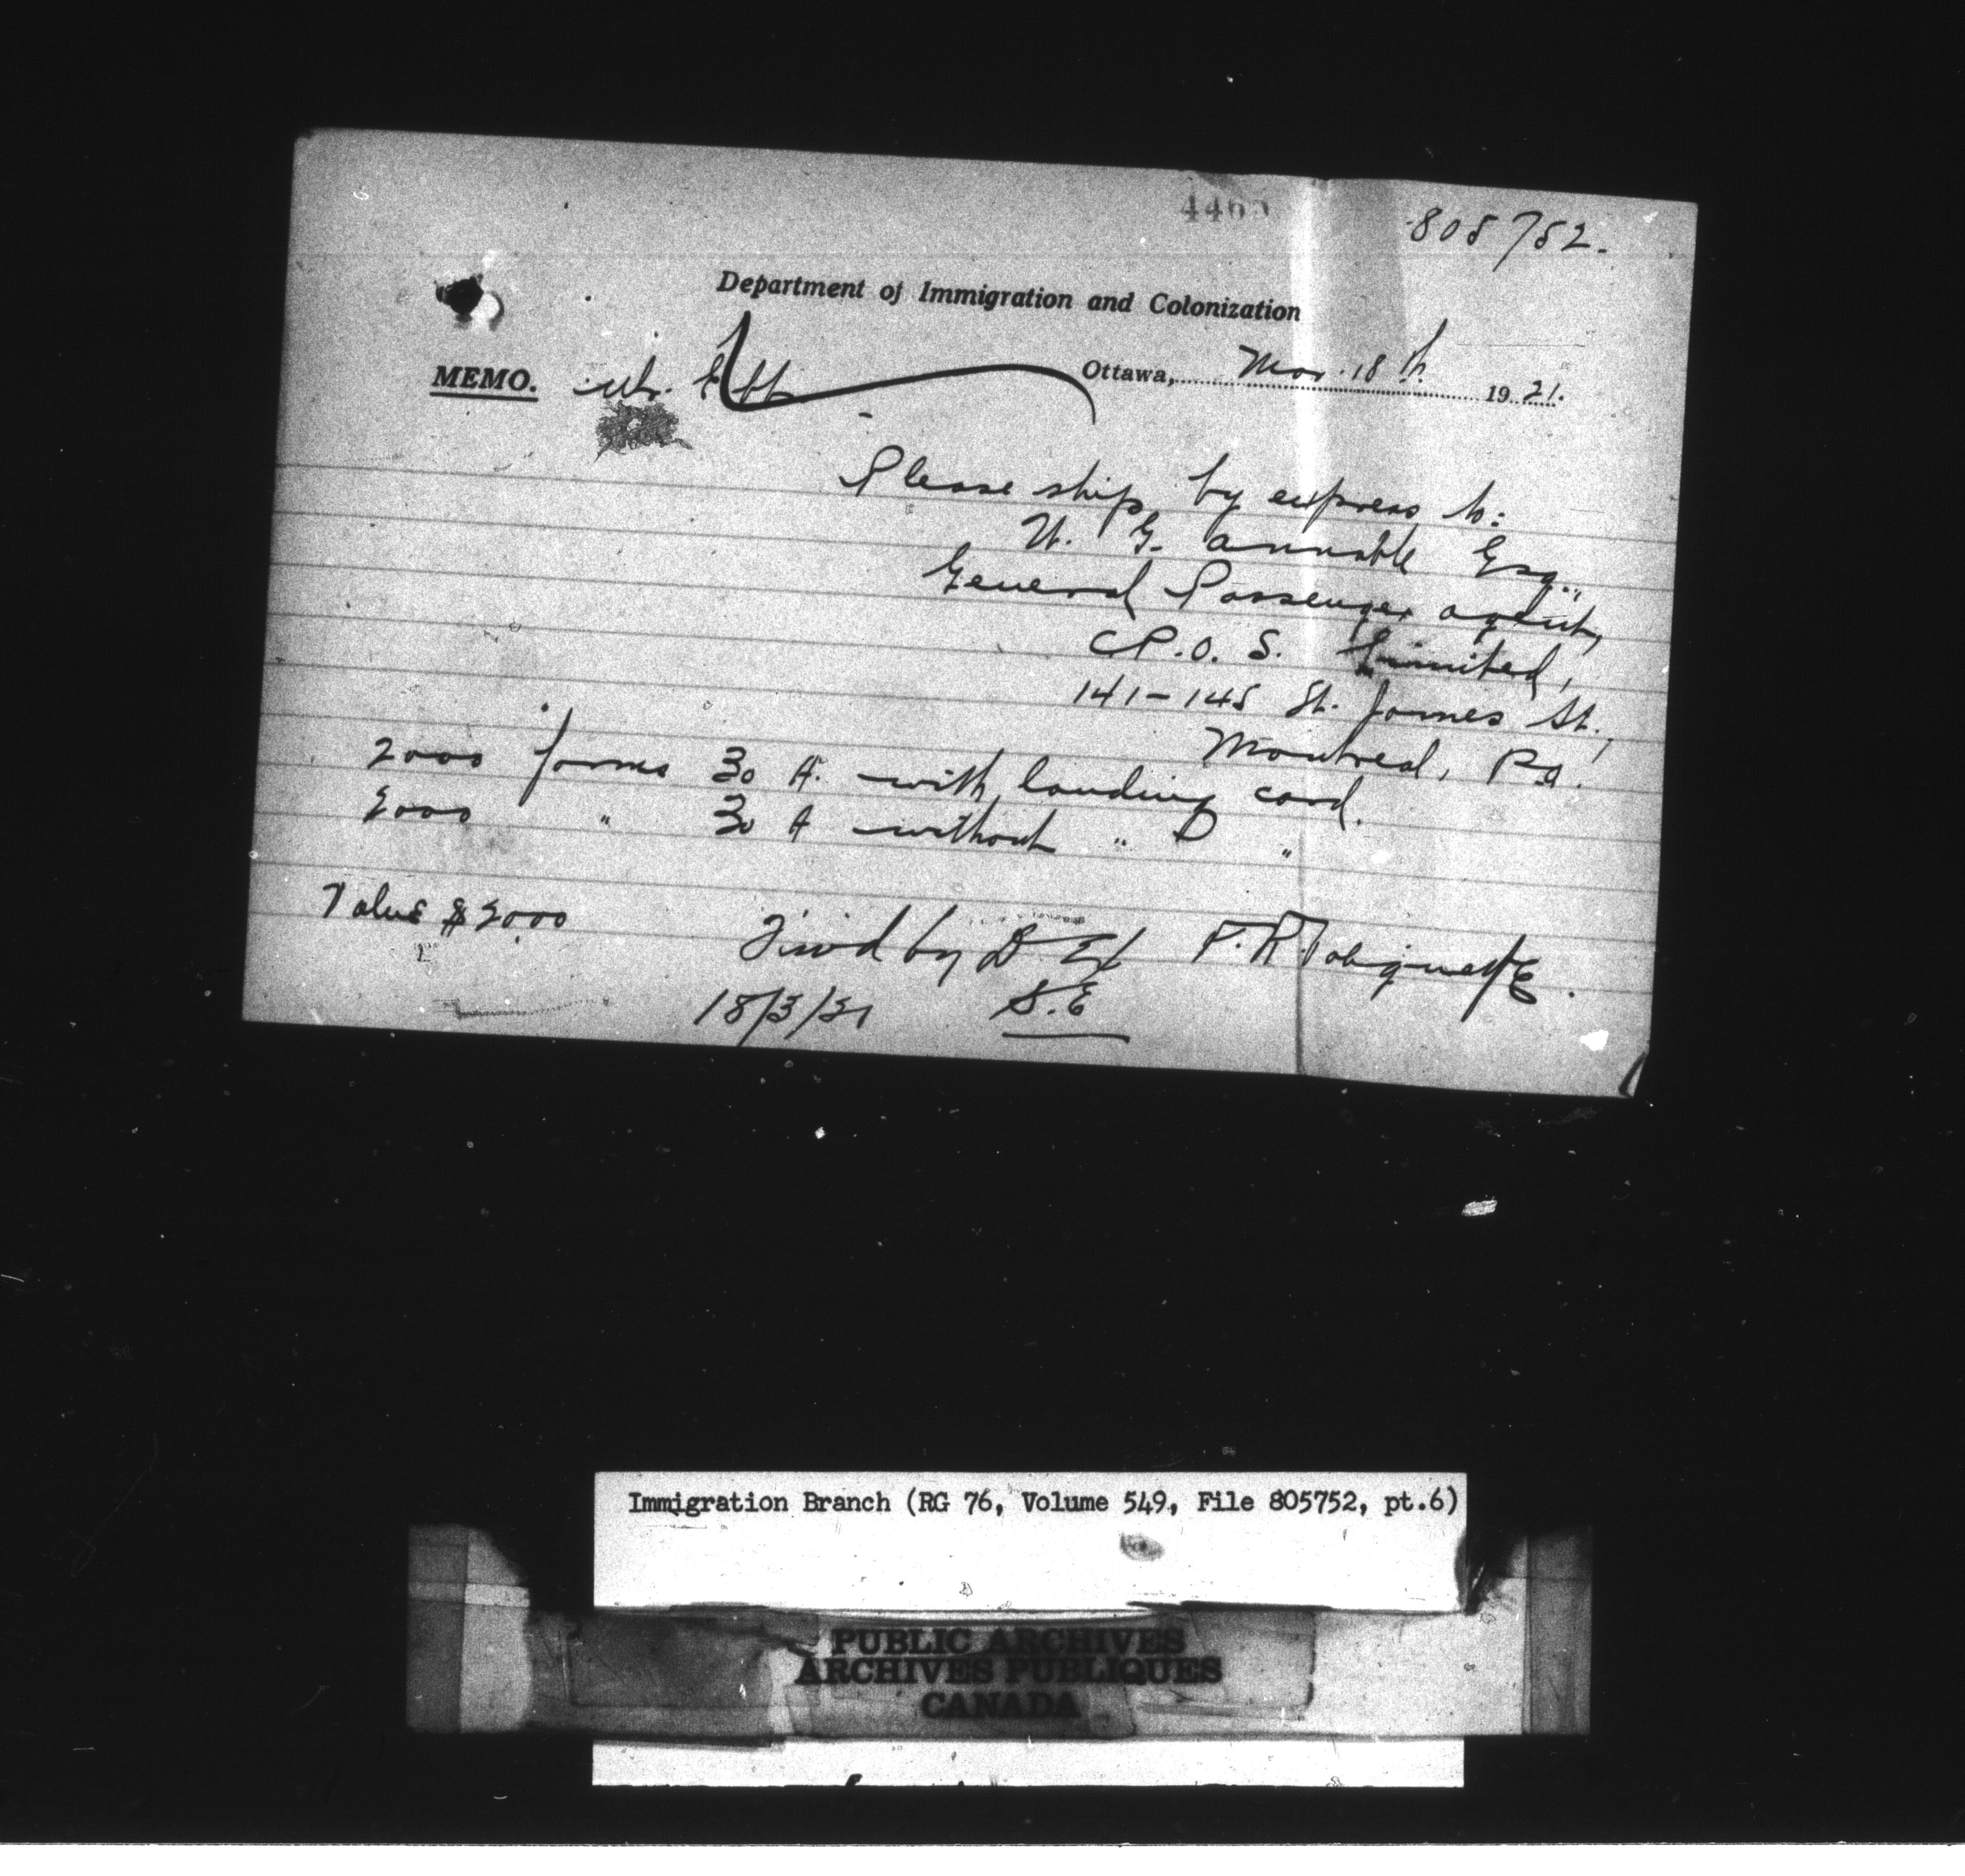 805752.
Department of Immigration and Colonization
MEMO. Mr.
Ottawa, Mar. 18th. 1921.
Please ship by express to:
W. G. Annable Esq.,
General Passenger Agent,
C.P.O.S. Limited,
141-145 St. James St.,
Montreal, P.Q.
2000 forms 30 A. with landing card.
2000 " 30 A without " "
Value $20.00
by
18/3/21 S.E
Immigration Branch (RG 76, Volume 549, File 805752, pt.6)
PUBLIC ARCHIVES
ARCHIVES PUBLIQUES
CANADA